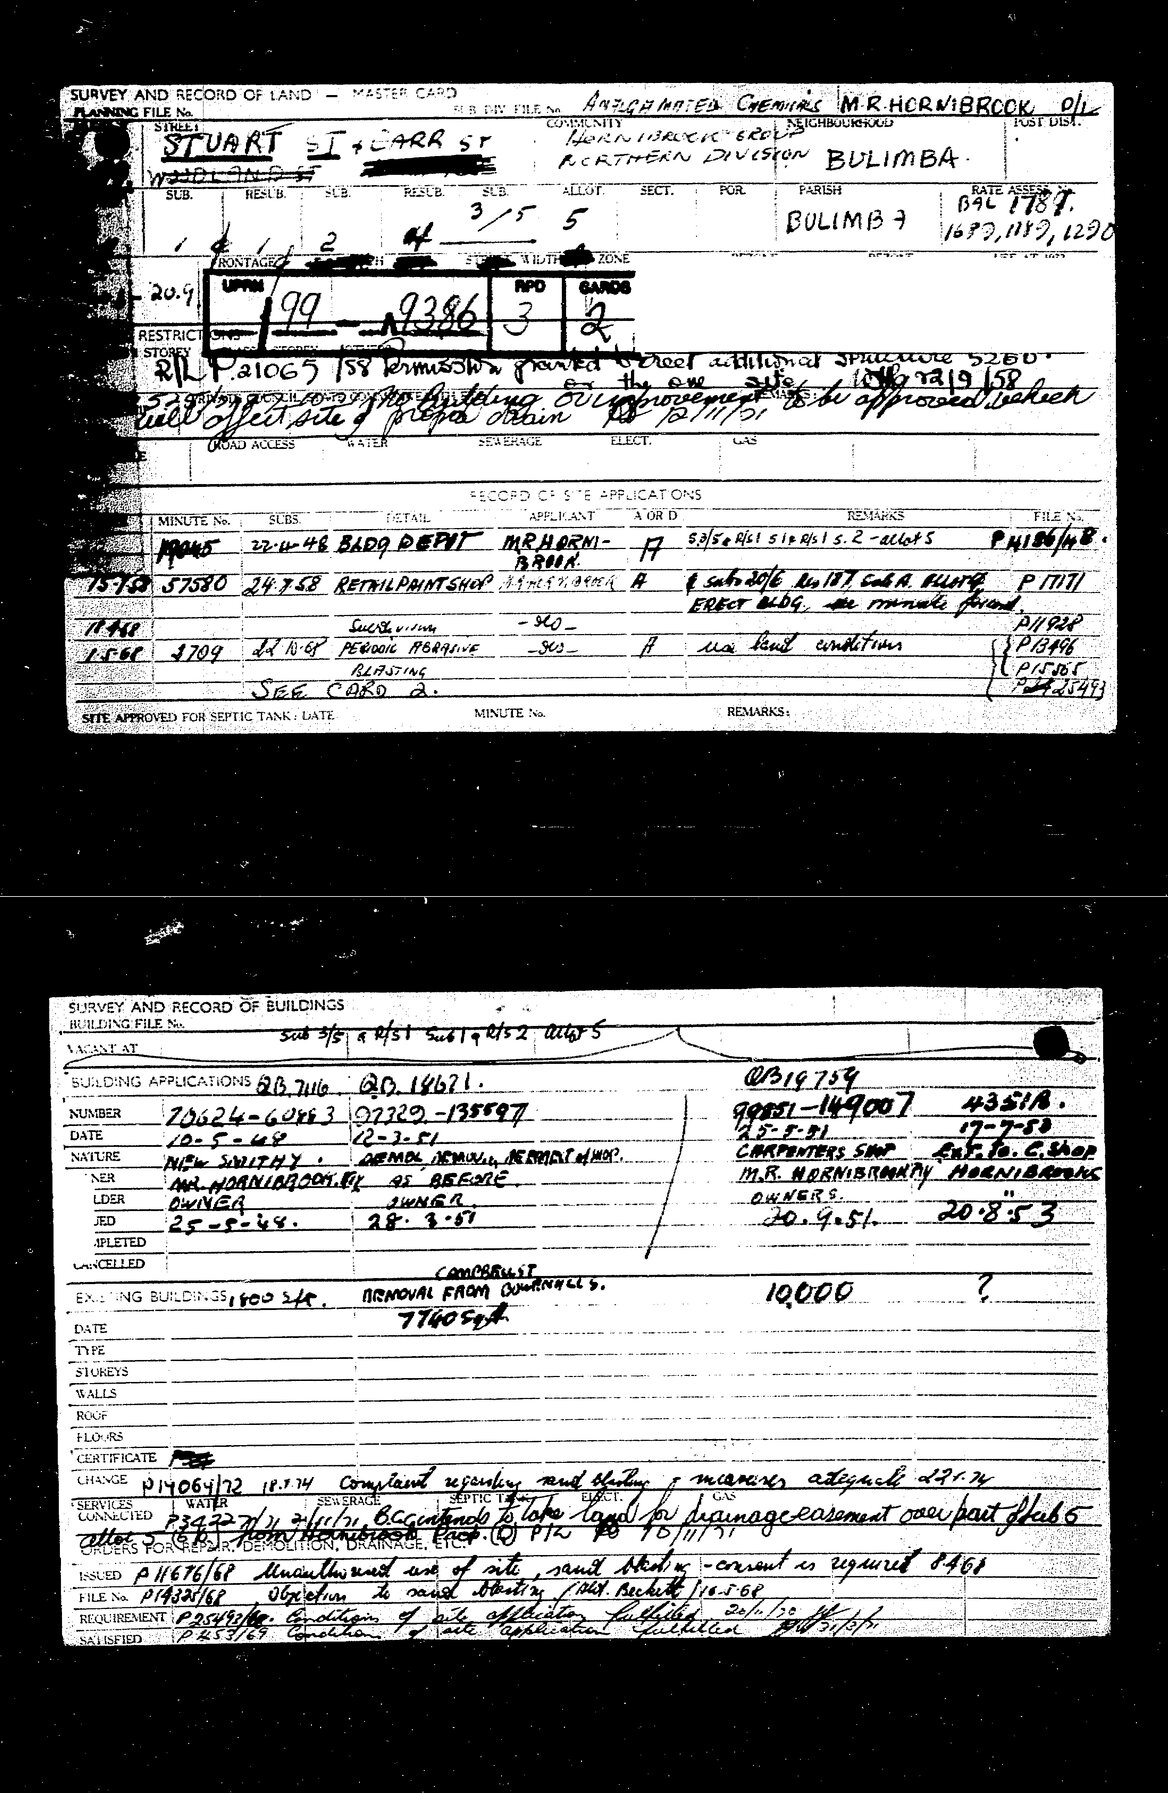 SURVEY AND RECORD OF LAND — MASTER CARD
PLANNING FILE No. SUB DIV. FILE No. AMALGAMATED CHEMICALS M.R. HORNIBROOK P/L
STREET COMMUNITY NEIGHBOURHOOD POST DIST.
STUART ST & CARR ST HORNIBROOK GROUP
WOODLAND ST NORTHERN DIVISION BULIMBA.
SUB. RESUB. SUB. RESUB. SUB. ALLOT. SECT. POR. PARISH RATE ASSESS. No.
1 1 2 4 3/5 5 BULIMBA BAL 1789.
1689, 1189, 1290
FRONTAGE WIDTH ZONE
UPRN RPD CARDS
20.9 199 — 9386 3 2
RESTRICTIONS
STOREY
R/L P.21065/58 Permission granted erect additional structure 5260.
on the one site 22/9/58
No building or improvement to be approved which
will affect site of proposed drain 12/11/71
ROAD ACCESS WATER SEWERAGE ELECT. GAS
RECORD OF SITE APPLICATIONS
MINUTE No. SUBS. DETAIL APPLICANT A OR D REMARKS FILE No.
19045 22-4-48 BLDG DEPOT MR HORNI- A S.3/5 & R/S1 S1 & R/S1 S.2 - allot 5 P4186/48.
BROOK
15-7-58 57580 24.7.58 RETAIL PAINT SHOP A subs 20/6 Res 187 Sub A. Allot 9 P 17171
ERECT BLDG. see minute forward.
18.4.68 Subdivision -do- P11928
1.5.68 2709 22.10.68 PERIODIC ABRASIVE -do- A use land conditions P13496
BLASTING P15565
SEE CARD 2. P25493
SITE APPROVED FOR SEPTIC TANK: DATE MINUTE No. REMARKS:
SURVEY AND RECORD OF BUILDINGS
BUILDING FILE No.
Sub 3/5 & R/S1 Sub 1 & R/S 2 allot 5
VACANT AT
BUILDING APPLICATIONS QB.7116 QB.18671. QB19759
NUMBER 70624-60883 97329-135597 99851-149007 4351B.
DATE 10-5-48 12-3-51 25-5-51 17-7-53
NATURE NEW SMITHY. DEMOL, REMOVING, RE ERECT OF WKSHOP. CARPENTERS SHOP Ext. to. C. Shop
NER MR. HORNIBROOK Pty AS BEFORE. M.R. HORNIBROOK Pty HORNIBROOKS
LDER OWNER OWNER OWNERS. "
JED 25-5-48. 28.3.51 20.9.51. 20.8.53
MPLETED
CANCELLED
CAMPBELL ST
EXISTING BUILDINGS 1800 S/F. REMOVAL FROM DOWNHILLS. 10,000 ?
DATE 7740 Sq ft
TYPE
STOREYS
WALLS
ROOF
FLOORS
CERTIFICATE
CHANGE P14064/72 18.1.74 Complaint regarding sand blasting, measures adequate 22.1.74
SERVICES WATER SEWERAGE SEPTIC TANK ELECT. GAS
CONNECTED P34227/71 2/11/71, B.C.C. intends to take land for drainage easement over part of sub 5
allot 5 from Hornibrook Prop. (Q) P/L 10/11/71
ORDERS FOR REPAIR, DEMOLITION, DRAINAGE, ETC.
ISSUED P11676/68 Unauthorised use of site, sand blasting - consent is required 8.4.68
FILE No. P14325/68 Objection to sand blasting (Ald. Beckett) 16.5.68
REQUIREMENT P25493/68. Conditions of site application fulfilled 20/11/70
SATISFIED P453/69 Conditions of site application fulfilled